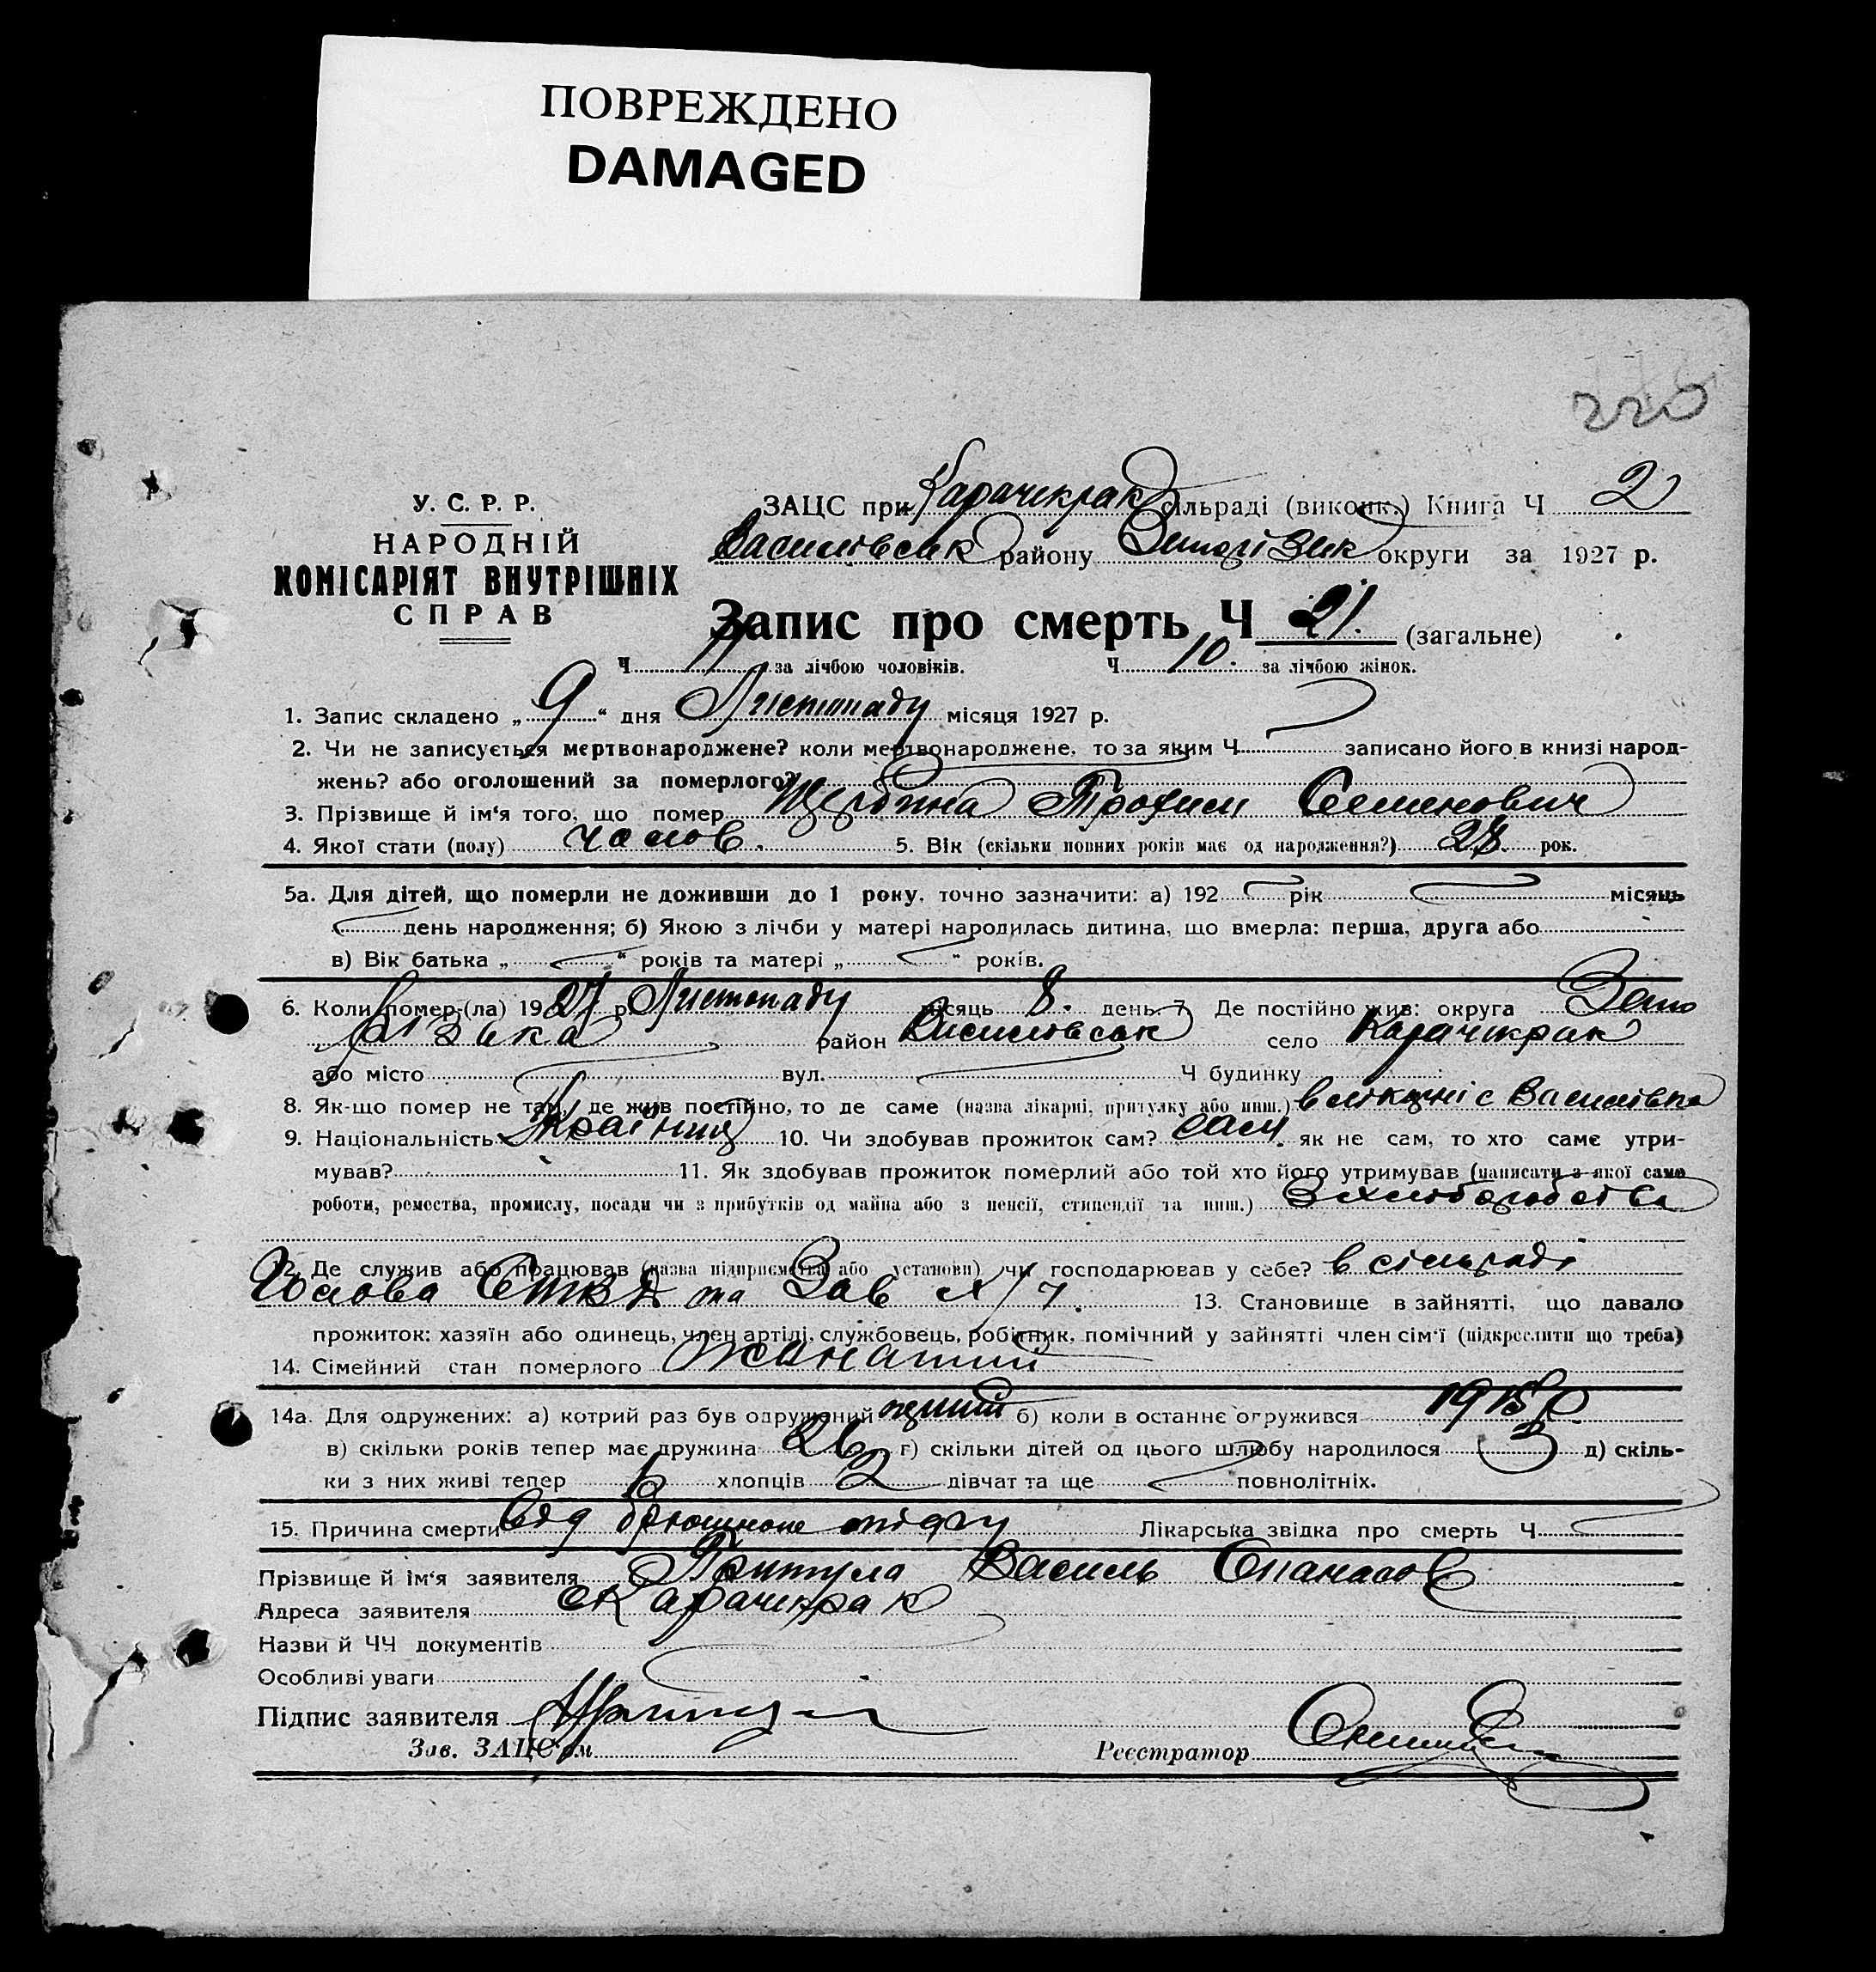 ПОВРЕЖДЕНО
DAMAGED
220
У. С. Р. Р.
НАРОДНІЙ
КОМІСАРІЯТ ВНУТРІШНІХ
СПРАВ
ЗАЦС при Карачекрак сільраді (виконк.) Книга Ч 2
Василівськ району округи за 1927 р.
Запис про смерть Ч 21. (загальне)
Ч 11 за лічбою чоловіків. Ч 10. за лічбою жінок.
1. Запис складено „ 9 “ дня Листопаду місяця 1927 р.
2. Чи не записується мертвонароджене? коли мертвонароджене, то за яким Ч записано його в книзі народ-
жень? або оголошений за померлого?
3. Прізвище й ім‘я того, що помер Щербина Трофим Семенович
4. Якої стати (полу) чолов. 5. Вік (скільки повних років має од народження?) 28 рок.
5а. Для дітей, що померли не доживши до 1 року, точно зазначити: а) 192 рік місяць
день народження; б) Якою з лічби у матері народилась дитина, що вмерла: перша, друга або
в) Вік батька „ “ років та матері „ “ років.
6. Коли помер-(ла) 1927 р. Листопаду місяць 8. день. 7 Де постійно жив: округа Запо
різька район Василівськ село Карачекрак
або місто вул. Ч будинку
8. Як-що помер не там, де жив постійно, то де саме (назва лікарні, притулку або инш.) в лікарні с Василівка
9. Національність Країнец 10. Чи здобував прожиток сам? сам. як не сам, то хто саме утри-
мував? 11. Як здобував прожиток померлий або той хто його утримував (написати з якої саме
роботи, ремества, промислу, посади чи з прибутків од майна або з пенсії, стипендії та инш.) З хлиборобства
12. Де служив або працював (назва підприємства або установи) чи господарював у себе? в сільраді
Голова та Зав 13. Становище в зайнятті, що давало
прожиток: хазяїн або одинець, член артілі, службовець, робітник, помічний у зайнятті член сім‘ї (підкреслити що треба)
14. Сімейний стан померлого Жонатий
14а. Для одружених: а) котрий раз був одружений б) коли в останнє одружився 1918 р
в) скільки років тепер має дружина 26 г) скільки дітей од цього шлюбу народилося 3 д) скіль-
ки з них живі тепер хлопців 2 дівчат та ще повнолітніх.
15. Причина смерти від брюшного тіфу Лікарська звідка про смерть Ч
Прізвище й ім‘я заявителя Притула Василь Опанасов
Адреса заявителя с Карачекрак
Назви й ЧЧ документів
Особливі уваги
Підпис заявителя
Зав. ЗАЦС‘ом Реєстратор